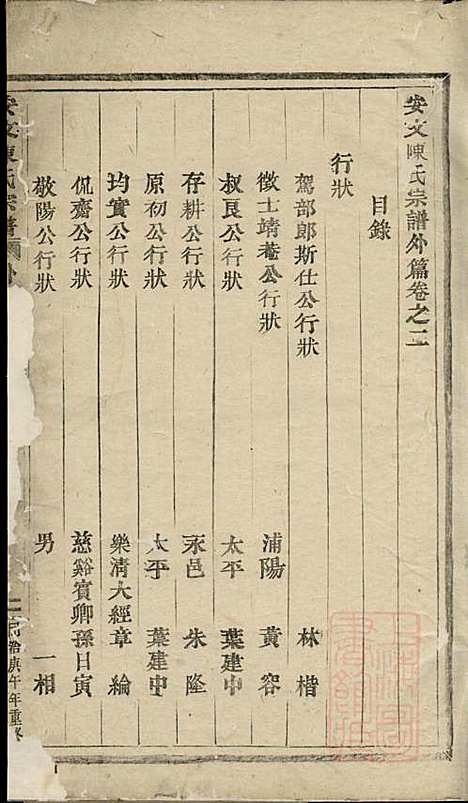 安文陳氏宗譜外篇卷之二
目錄
行狀
駕部郎斯仕公行狀 林楷
徵士靖菴公行狀 浦陽 黃容
叔良公行狀 太平 葉建中
存耕公行狀 永邑 朱隆
原初公行狀 太平 葉建中
均實公行狀 樂清大經章綸
侃齋公行狀 慈谿賓卿孫日寅
敬陽公行狀 男 一相
安文陳氏宗譜
治庚午年重修